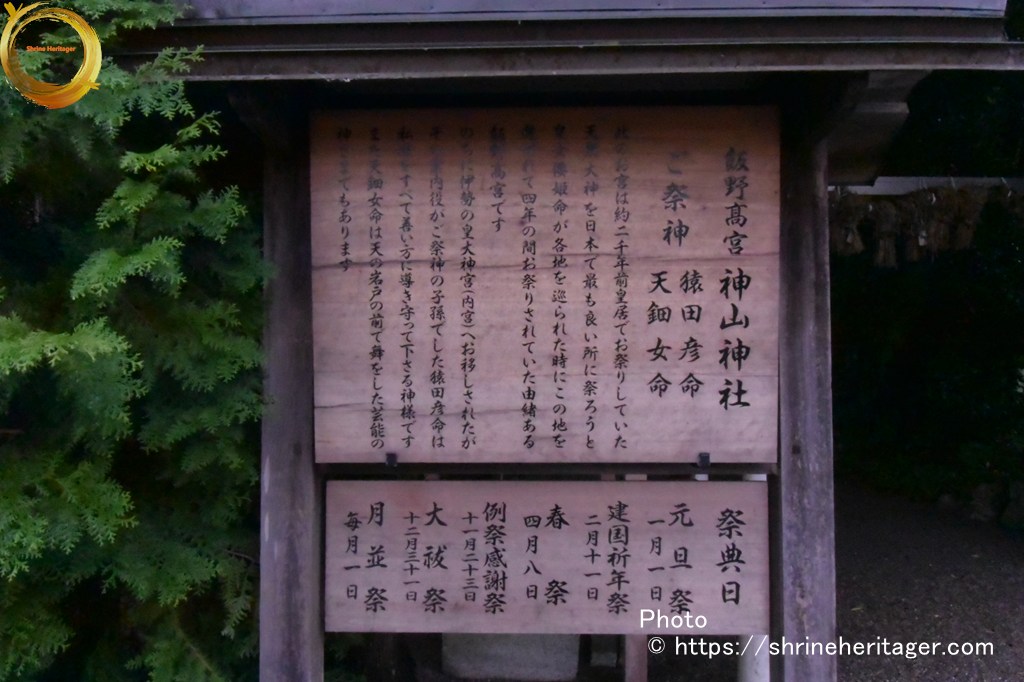 Shrine Heritager
飯野高宮 神山神社
ご祭神 猿田彦命
天鈿女命
此のお宮は約二千年前皇居でお祭りしていた
天照大神を日本で最も良い所に祭ろうと
皇女倭姫命が各地を巡られた時にこの地を
られて四年の間お祭りされていた由緒ある
飯野高宮です
のちに伊勢の皇大神宮(内宮)へお移しされたが
その案内役がご祭神の子孫でした猿田彦命は
私達をすべて善い方に導き守って下さる神様です
また天鈿女命は天の岩戸の前で舞をした芸能の
神さまでもあります
祭典日
元旦祭
一月一日
建国祈年祭
二月十一日
春祭
四月八日
例祭感謝祭
十一月二十三日
大祓祭
十二月三十一日
月並祭
毎月一日
Photo
© https://shrineheritager.com